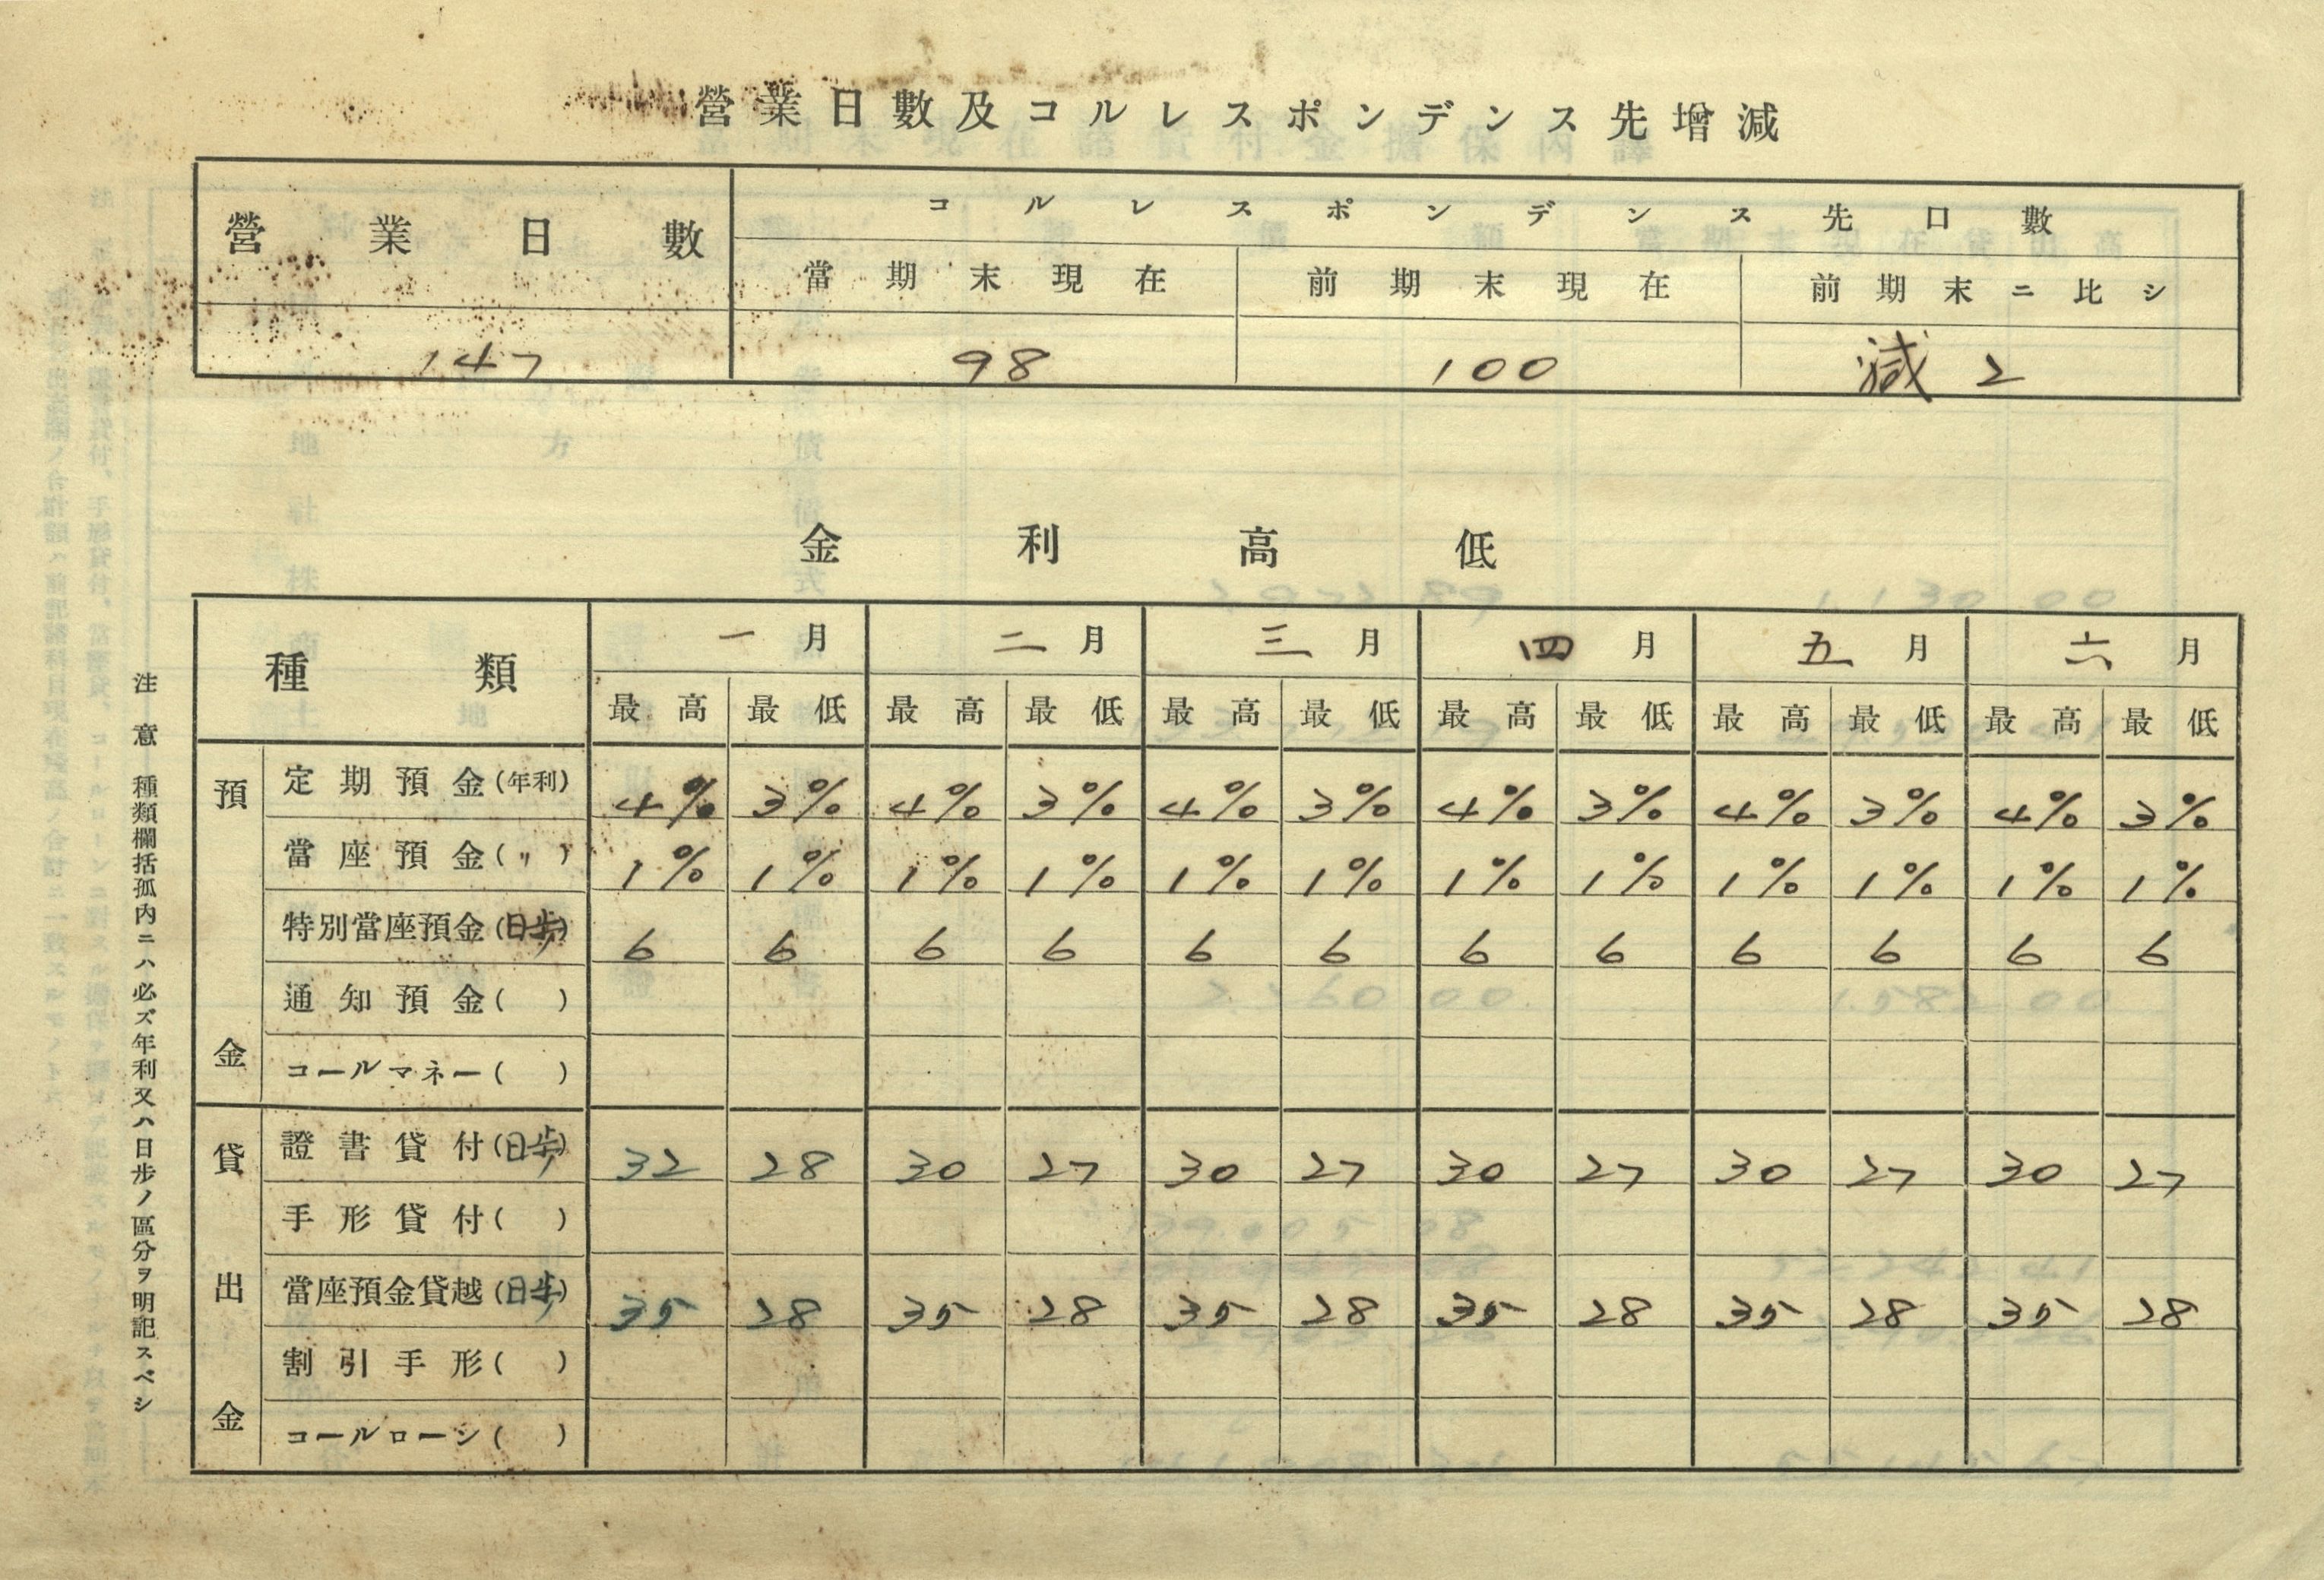 營業日數及コルレスポンデンス先增減
營業日數
コルレスポンデンス先口數
當期末現在 前期末現在 前期末ニ比シ
147 98 100 減 2
金利高低
種類 一月 二月 三月 四月 五月 六月
最高 最低 最高 最低 最高 最低 最高 最低 最高 最低 最高 最低
預金
定期預金(年利) 4% 3% 4% 3% 4% 3% 4% 3% 4% 3% 4% 3%
當座預金(〃) 1% 1% 1% 1% 1% 1% 1% 1% 1% 1% 1% 1%
特別當座預金(日歩) 6 6 6 6 6 6 6 6 6 6 6 6
通知預金( )
コールマネー( )
貸出金
證書貸付(日歩) 32 28 30 27 30 27 30 27 30 27 30 27
手形貸付( )
當座預金貸越(日歩) 35 28 35 28 35 28 35 28 35 28 35 28
割引手形( )
コールローン( )
注意 種類欄括孤內ニハ必ズ年利又ハ日步ノ區分ヲ明記スベシ